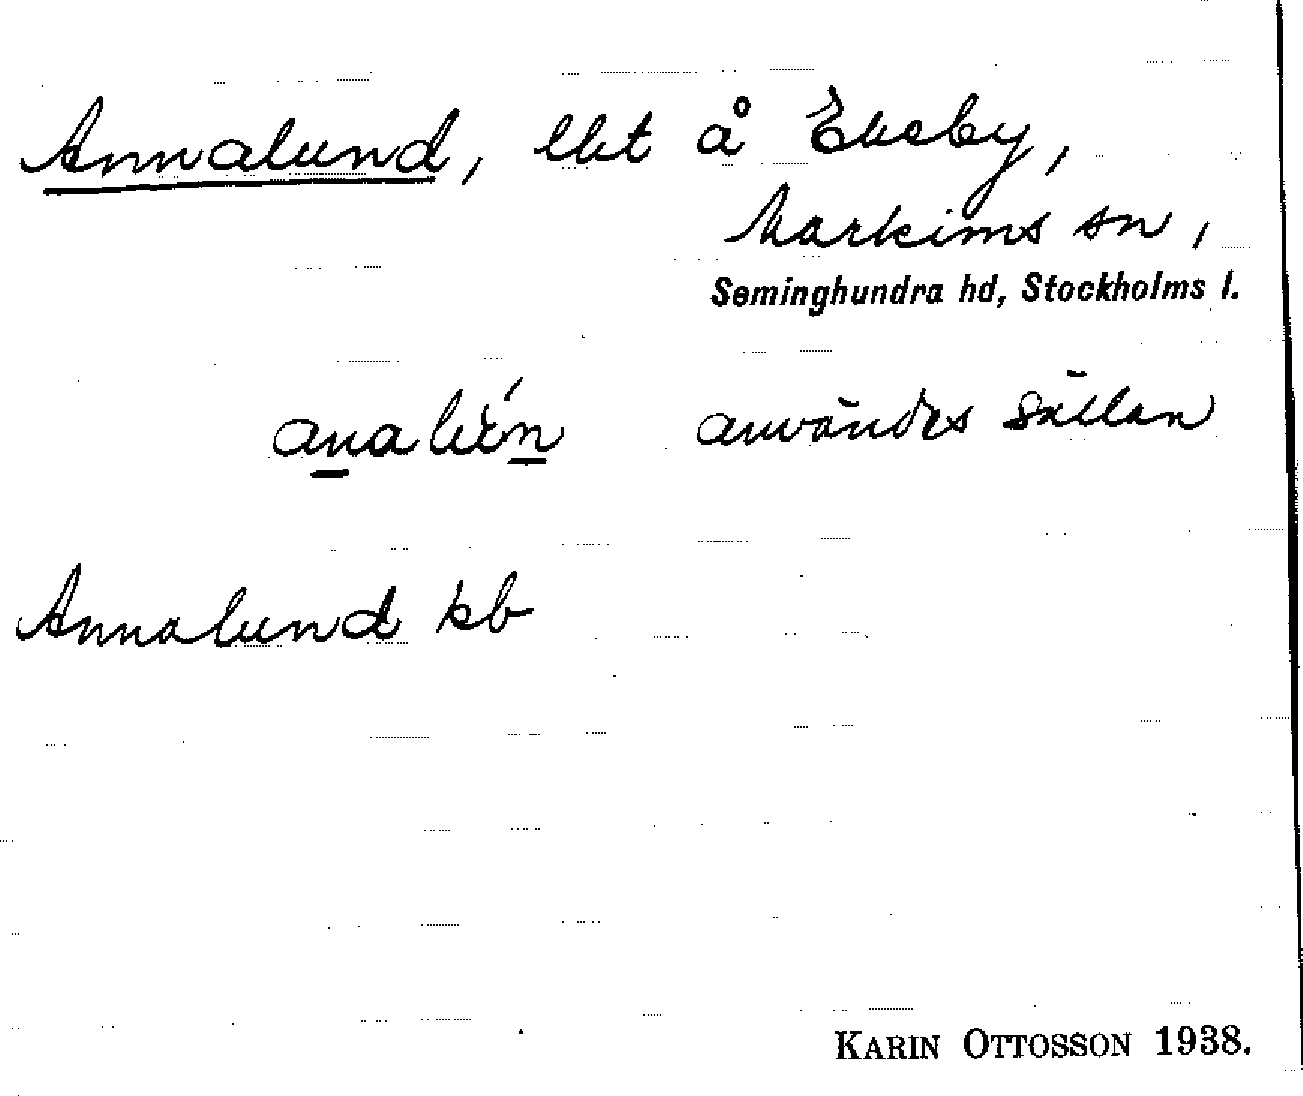 Annalund, lht å Ekeby,
Markims sn,
Seminghundra hd, Stockholms l.
användes sällan
Annalund kb
KARIN OTTOSSON 1938.